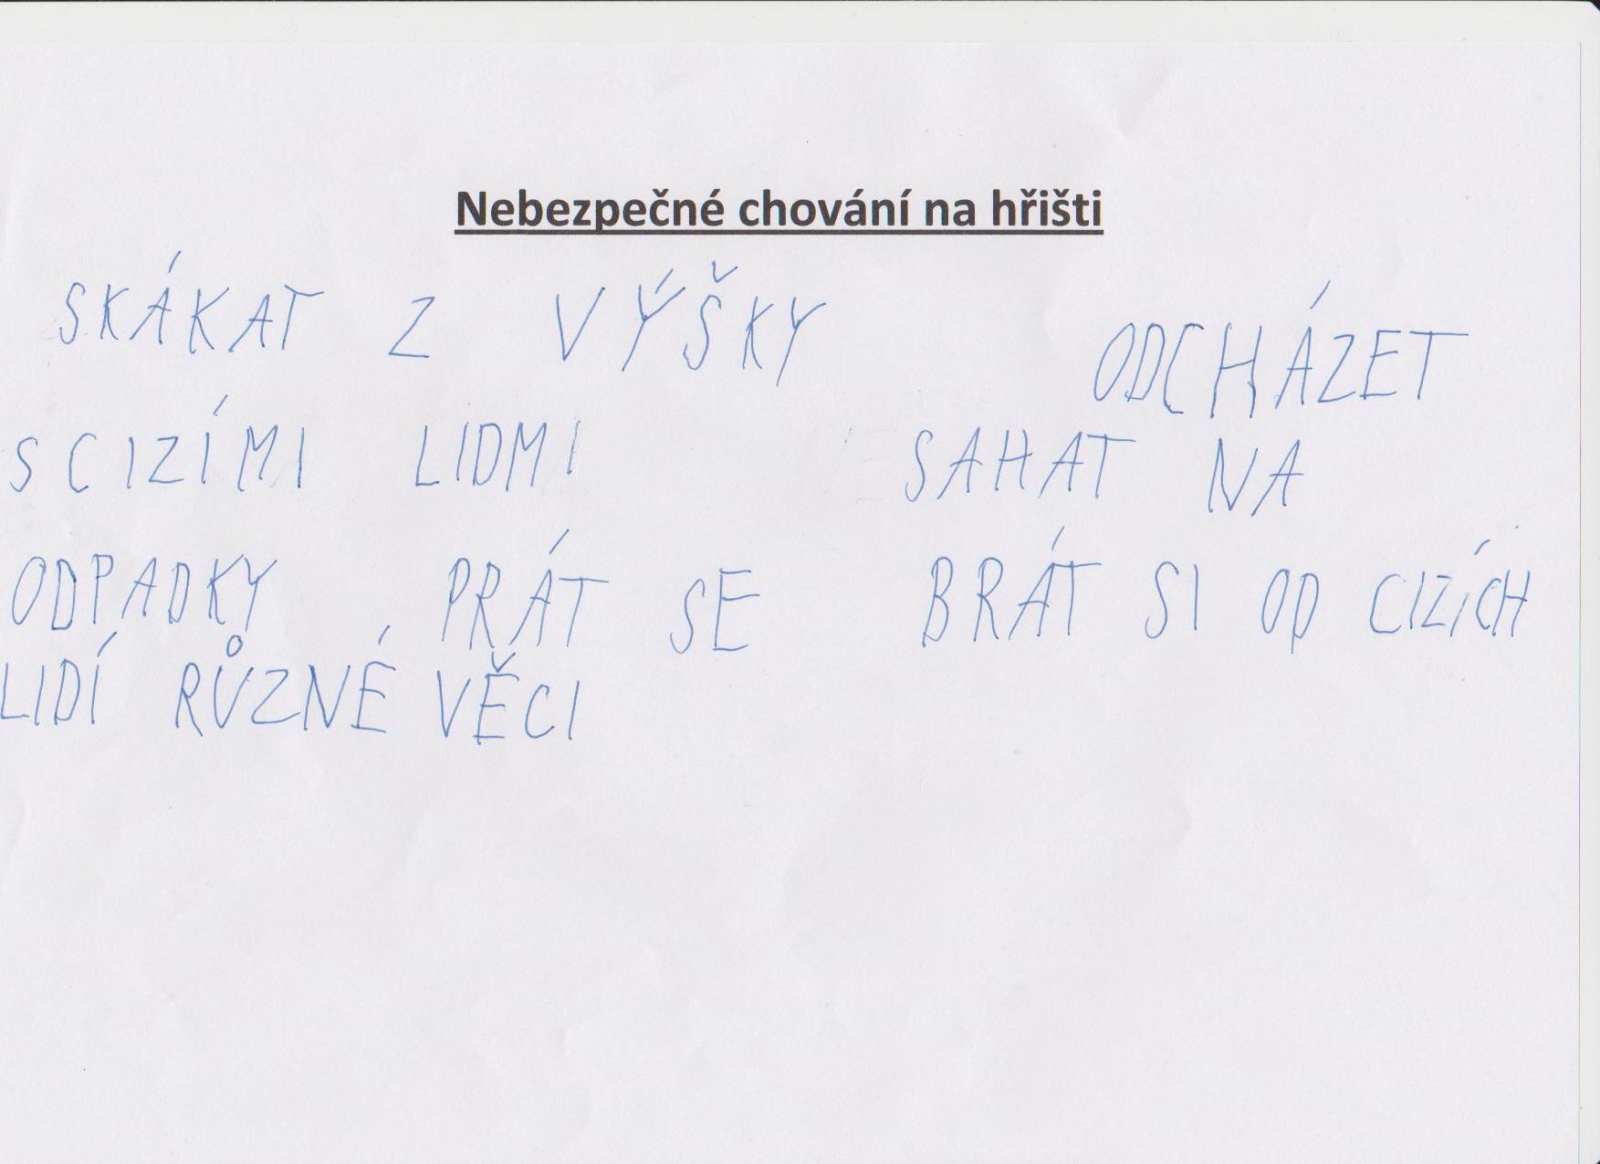 Nebezpečné chování na hřišti
SKÁKAT Z VÝŠKY ODCHÁZET
S CIZÍMI LIDMI SAHAT NA
ODPADKY PRÁT SE BRÁT SI OD CIZÍCH
LIDÍ RŮZNÉ VĚCI